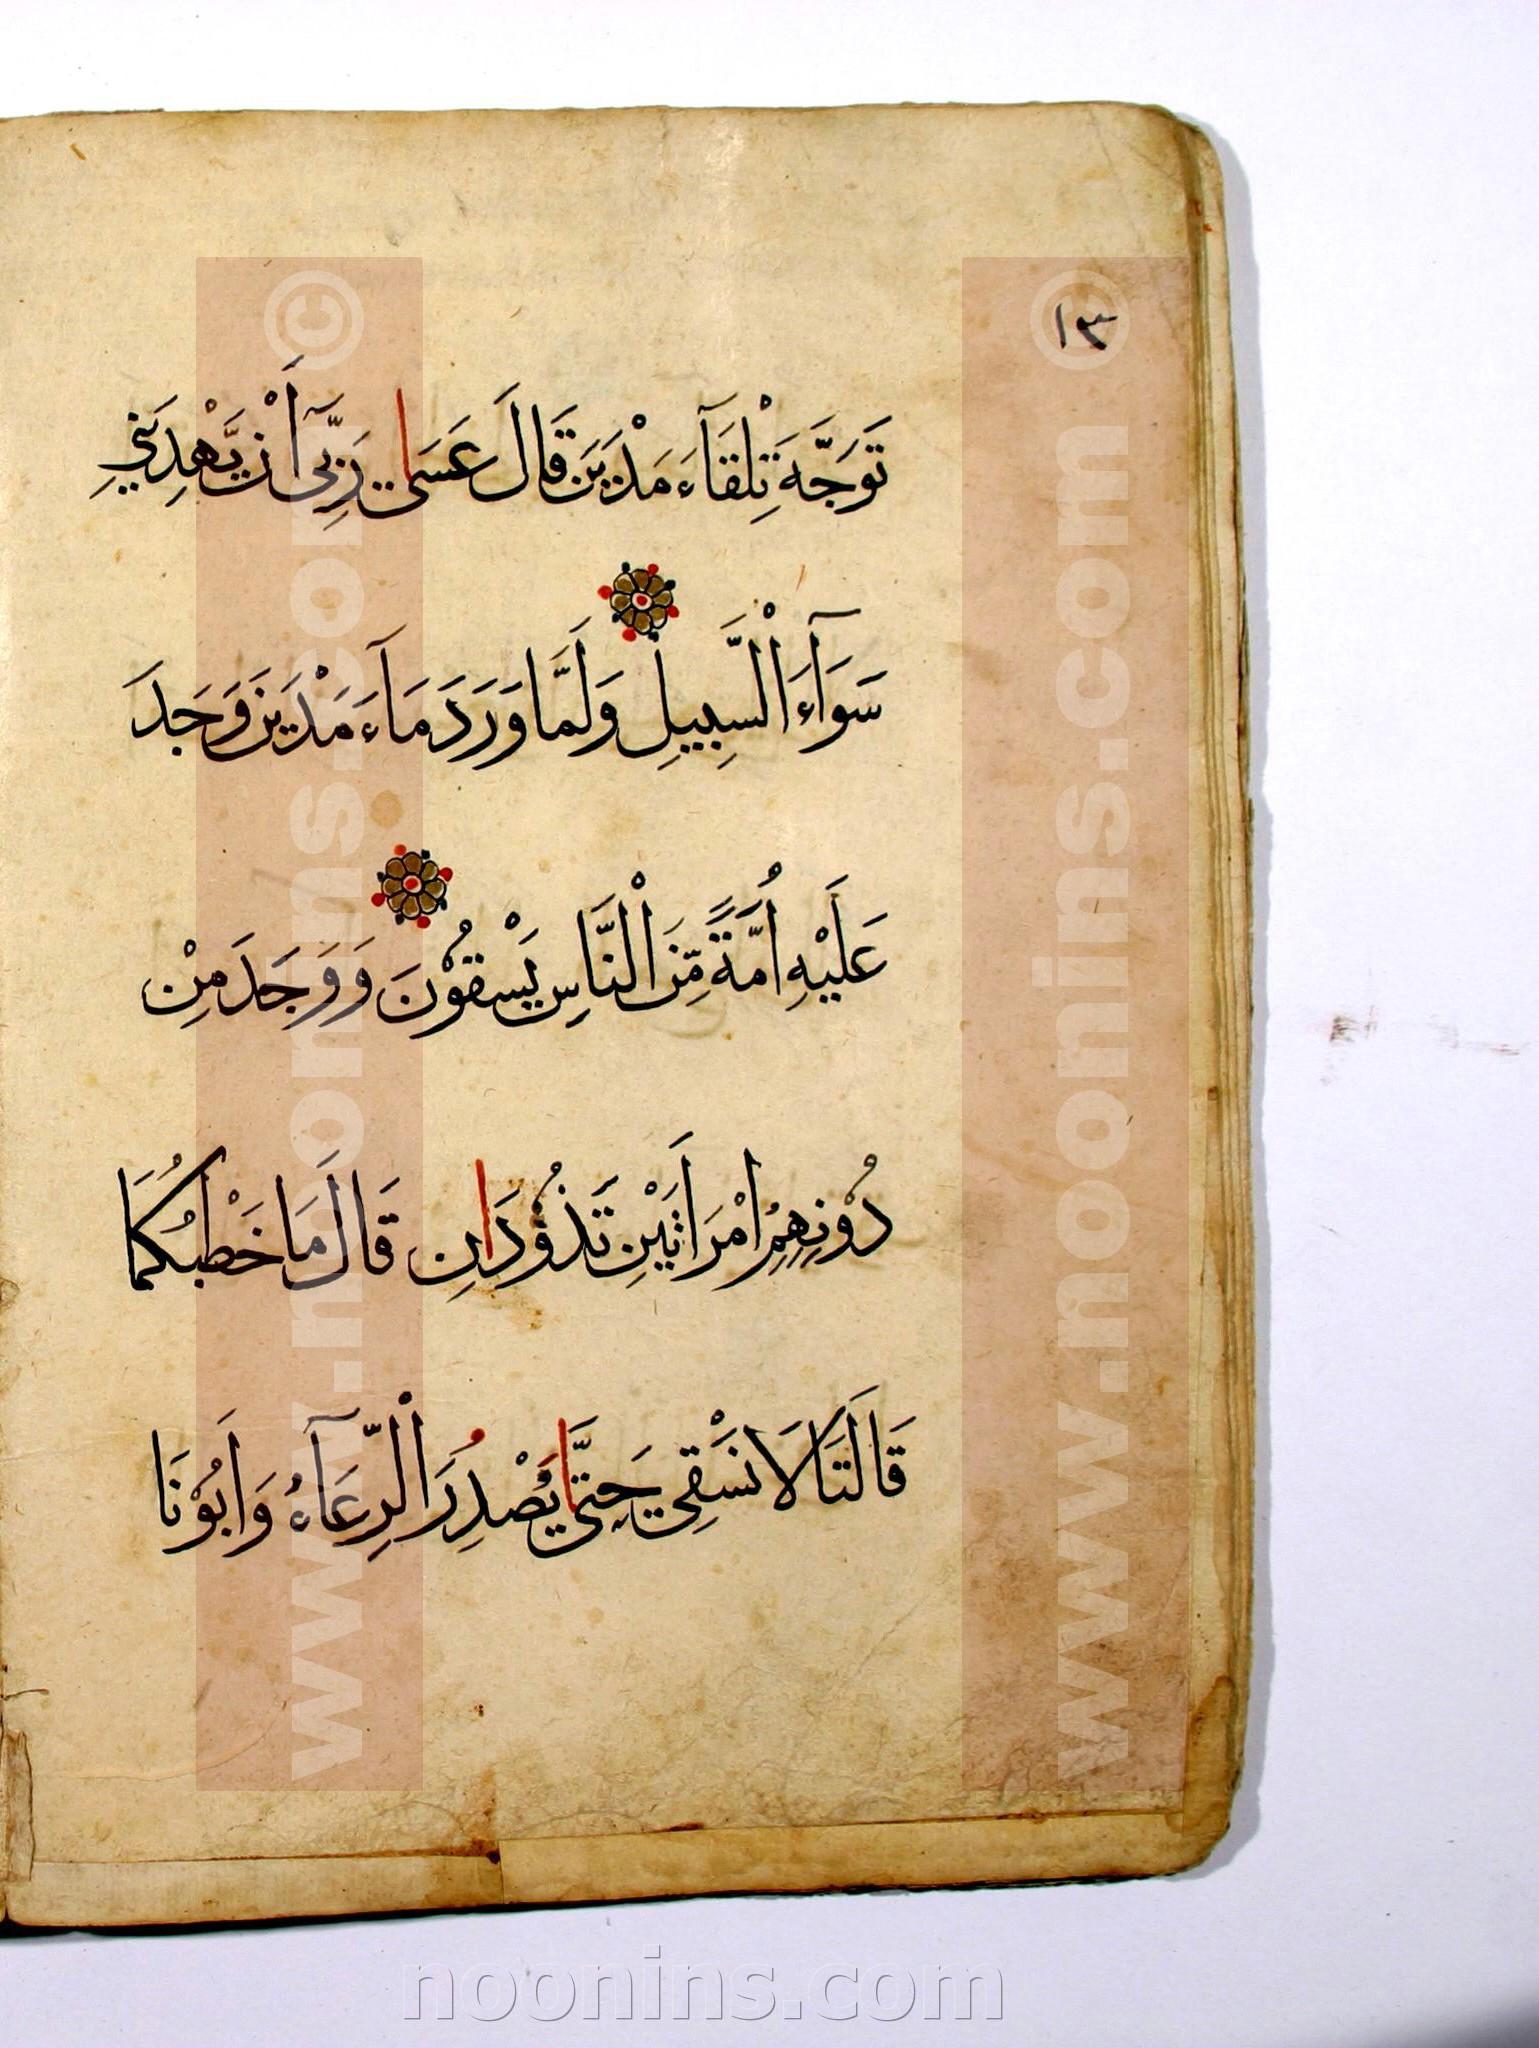 ١٣
تَوَجَّهَ تِلْقَآءَ مَدْيَنَ قَالَ عَسَىٰ رَبِّىٓ أَنْ يَّهْدِيَنِي
سَوَآءَ الْسَّبِيلِ وَلَمَّا وَرَدَ مَآءَ مَدْيَنَ وَجَدَ
عَلَيْهِ أُمَّةً مِّنَ الْنَّاسِ يَسْقُوْنَ وَوَجَدَ مِنْ
دُوْنِهِمُ امْرَأَتَيْنِ تَذُوْدَانِ قَالَ مَا خَطْبُكُمَا
قَالَتَا لَا نَسْقِي حَتَّىٰ يُصْدِرَ الْرِّعَآءُ وَأَبُوْنَا
www.noonins.com ©
www.noonins.com ©
noonins.com